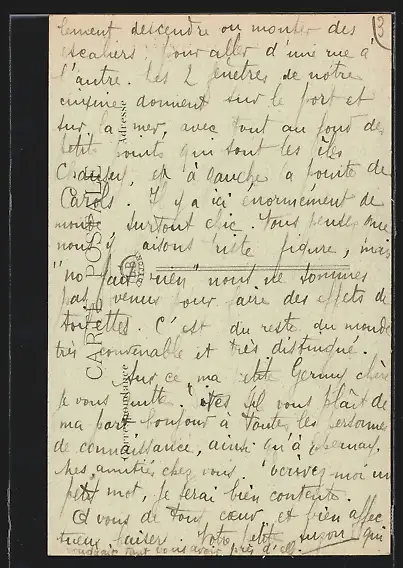 3
lement descendre ou monter des
escaliers pour aller d'une rue à
l'autre. Les 2 fenêtres de notre
cuisine donnent sur le port et
sur la mer, avec tout au fond de
petits points qui sont les îles
Chausey, et à gauche la pointe de
Carols. Il y a ici énormément de
monde, surtout chic. Vous pensez que
nous y faisons triste figure, mais
"ne fait rien" nous ne sommes
pas venus pour faire des effets de
toilettes. C'est du reste du monde
très convenable et très distingué.
Sur ce, ma petite Germaine chère
je vous quitte. Dites s'il vous plaît de
ma part bonjour à toutes les personnes
de connaissance, ainsi qu'à Epernay.
Mes amitiés chez vous. Ecrivez-moi un
petit mot, je serai bien contente.
A vous de tout cœur, et bien affec
tueux baiser. Votre petite Suzon qui
voudrait tant vous avoir près d'elle.
CARTE POSTALE
Correspondance
Adresse